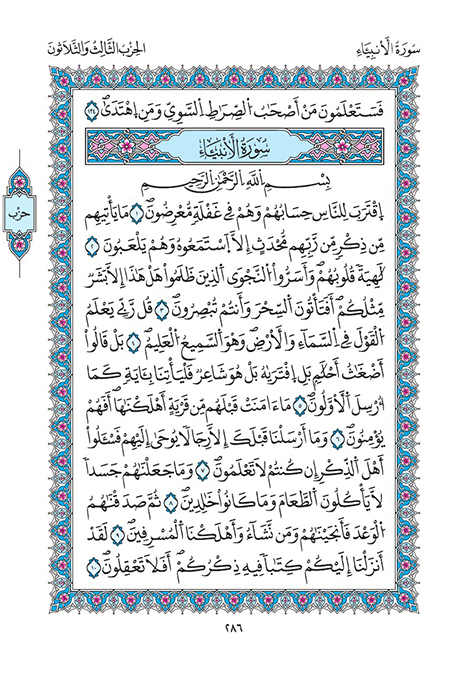 سُورَةُ الْأَنْبِيَاءِ
الحِزْبُ الثَّالِثُ وَالثَّلَاثُونَ
فَسَتَعْلَمُونَ مَنْ أَصْحَٰبُ الصِّرَٰطِ السَّوِيِّ وَمَنِ اِهْتَدَىٰۖ ١٣٤
سُورَةُ الْأَنْبِيَاءِ
بِسْمِ اللَّهِ الرَّحْمَٰنِ الرَّحِيمِ
اِقْتَرَبَ لِلنَّاسِ حِسَابُهُمْ وَهُمْ فِي غَفْلَةٖ مُّعْرِضُونَۖ ١ مَا يَأْتِيهِم
حِزْب
مِّن ذِكْرٖ مِّن رَّبِّهِم مُّحْدَثٍ إِلَّا اَسْتَمَعُوهُ وَهُمْ يَلْعَبُونَ ٢
لَٰهِيَةٗ قُلُوبُهُمْۖ وَأَسَرُّواْ النَّجْوَى اَلذِينَ ظَلَمُواْ هَلْ هَٰذَا إِلَّا بَشَرٞ
مِّثْلُكُمْۖ أَفَتَأْتُونَ اَلسِّحْرَ وَأَنتُمْ تُبْصِرُونَۖ ٣ قُل رَّبِّي يَعْلَمُ
اُلْقَوْلَ فِي اِلسَّمَآءِ وَالْأَرْضِۖ وَهُوَ اَلسَّمِيعُ اُلْعَلِيمُۖ ٤ بَلْ قَالُواْ
أَضْغَٰثُ أَحْلَٰمِۭ بَلِ اِفْتَرَىٰهُ بَلْ هُوَ شَاعِرٞۖ فَلْيَأْتِنَا بِـَٔايَةٖ كَمَا
أُرْسِلَ اَلْأَوَّلُونَۖ ٥ مَآ ءَامَنَتْ قَبْلَهُم مِّن قَرْيَةٍ أَهْلَكْنَٰهَآۖ أَفَهُمْ
يُؤْمِنُونَۖ ٦ وَمَآ أَرْسَلْنَا قَبْلَكَ إِلَّا رِجَالٗا يُوحَىٰٓ إِلَيْهِمْۖ فَسْـَٔلُوٓاْ
أَهْلَ اَلذِّكْرِ إِن كُنتُمْ لَا تَعْلَمُونَۖ ٧ وَمَا جَعَلْنَٰهُمْ جَسَدٗا
لَّا يَأْكُلُونَ اَلطَّعَامَ وَمَا كَانُواْ خَٰلِدِينَۖ ٨ ثُمَّ صَدَقْنَٰهُمُ
اُلْوَعْدَ فَأَنجَيْنَٰهُمْ وَمَن نَّشَآءُ وَأَهْلَكْنَا اَلْمُسْرِفِينَۖ ٩ لَقَدْ
أَنزَلْنَآ إِلَيْكُمْ كِتَٰباٗ فِيهِ ذِكْرُكُمْۖ أَفَلَا تَعْقِلُونَۖ ١٠
٢٨٦